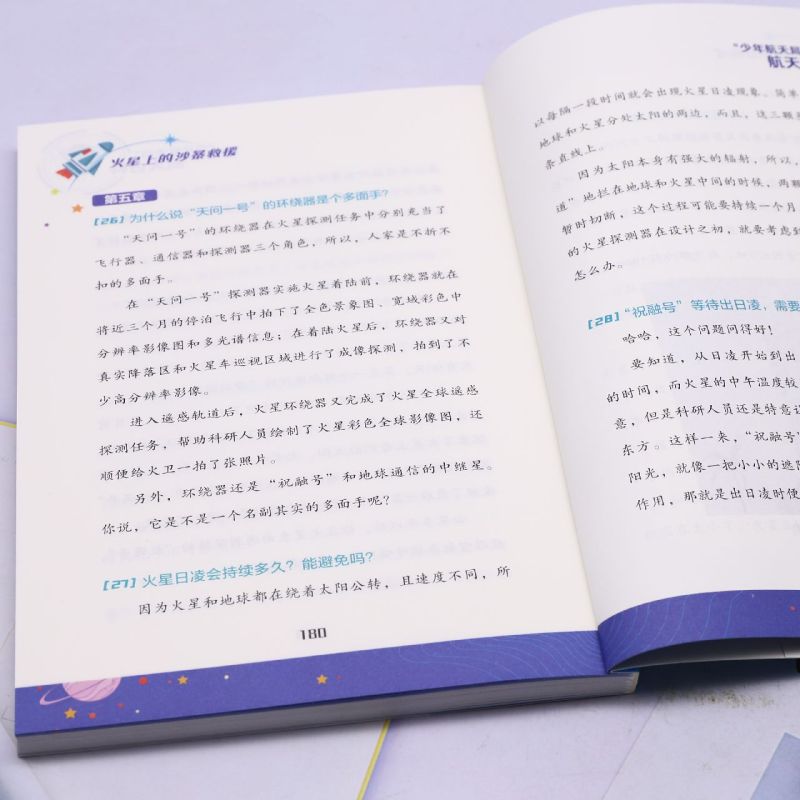 火星上的沙暴救援
第五章
[26] 为什么说“天问一号”的环绕器是个多面手？
“天问一号”的环绕器在火星探测任务中分别充当了
飞行器、通信器和探测器三个角色，所以，人家是不折不
扣的多面手。
在“天问一号”探测器实施火星着陆前，环绕器就在
将近三个月的停泊飞行中拍下了全色景象图、宽域彩色中
分辨率影像图和多光谱信息；在着陆火星后，环绕器又对
真实降落区和火星车巡视区域进行了成像探测，拍到了不
少高分辨率影像。
进入遥感轨道后，火星环绕器又完成了火星全球遥感
探测任务，帮助科研人员绘制了火星彩色全球影像图，还
顺便给火卫一拍了张照片。
另外，环绕器还是“祝融号”和地球通信的中继星。
你说，它是不是一个名副其实的多面手呢？
[27] 火星日凌会持续多久？能避免吗？
因为火星和地球都在绕着太阳公转，且速度不同，所
180
“少年航天局
航天
以每隔一段时间就会出现火星日凌现象。简单
地球和火星分处太阳的两边，而且，这三颗
条直线上。
因为太阳本身有强大的辐射，所以，
道”地拦在地球和火星中间的时候，两颗
暂时切断，这个过程可能要持续一个月
的火星探测器在设计之初，就要考虑到
怎么办。
[28] “祝融号”等待出日凌，需要
哈哈，这个问题问得好！
要知道，从日凌开始到出
的时间，而火星的中午温度较
意，但是科研人员还是特意设
东方。这样一来，“祝融号”
阳光，就像一把小小的遮阳
作用，那就是出日凌时便